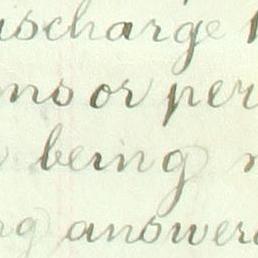 ischarge
ns or per
being
g answer